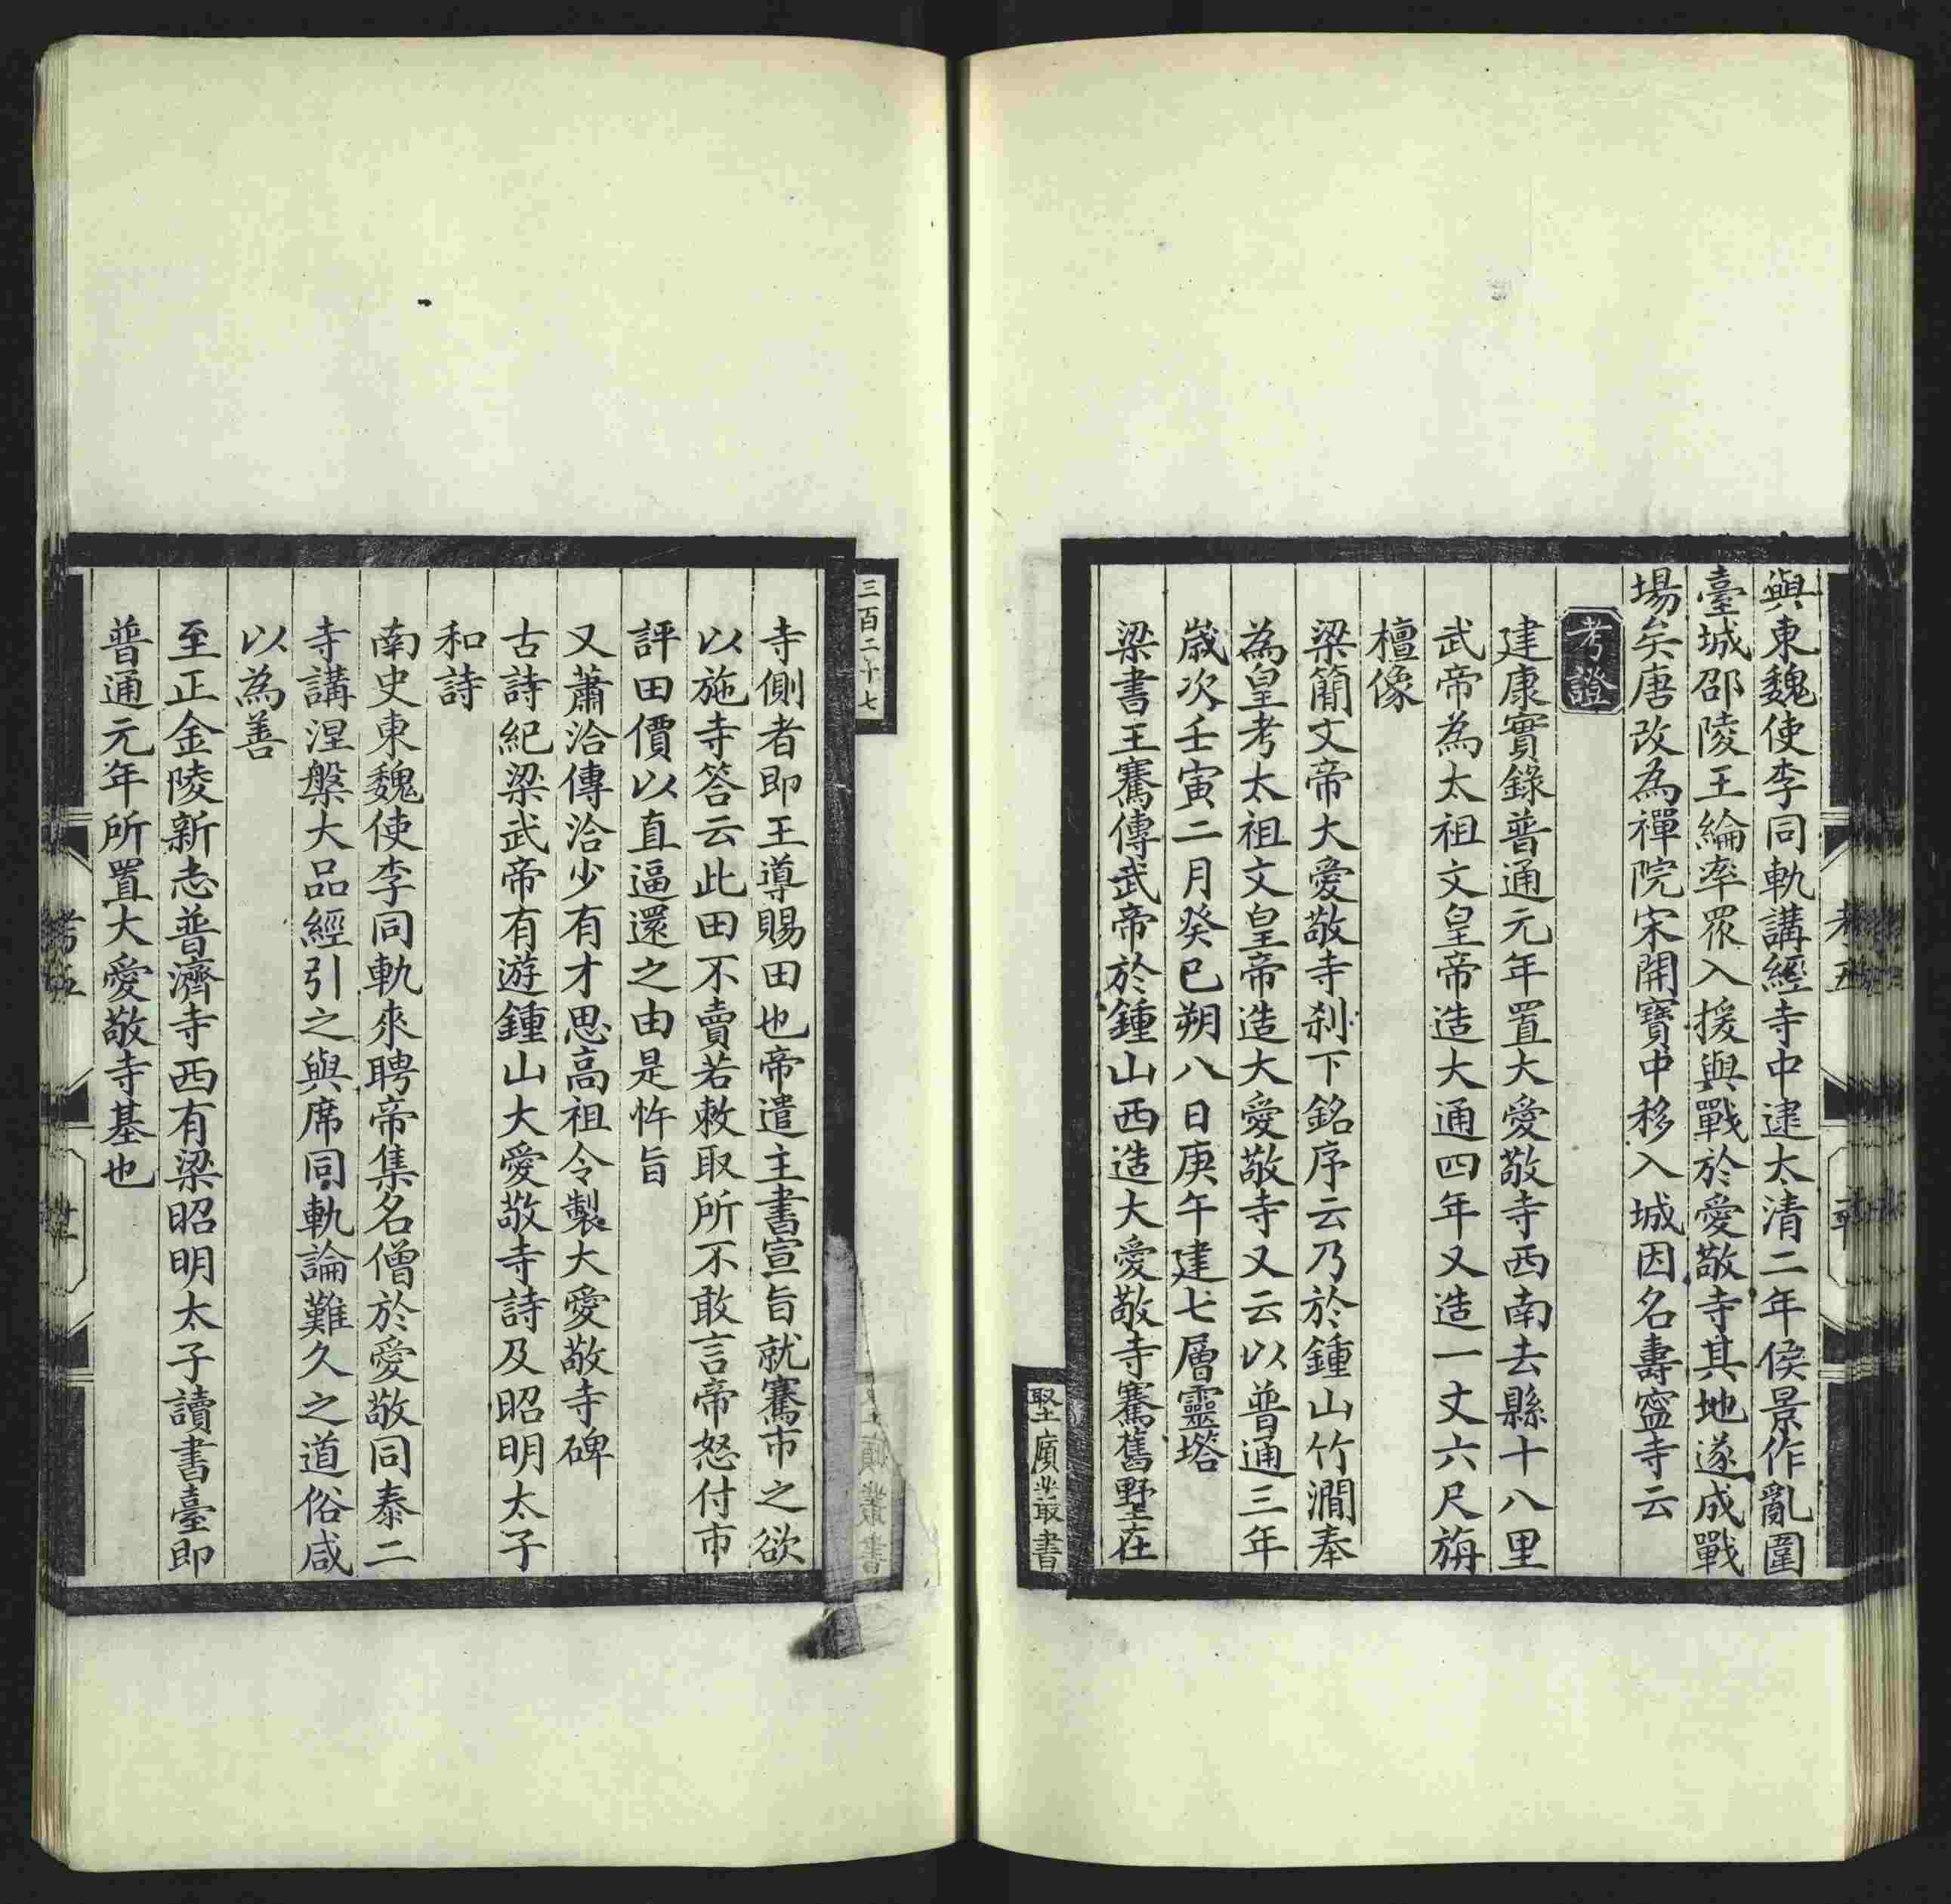 與東魏使李同軌講經寺中逮太清二年侯景作亂圍
臺城邵陵王綸率眾入援與戰於愛敬寺其地遂成戰
場矣唐改為禪院宋開寶中移入城因名壽寧寺云
考證
建康實錄普通元年置大愛敬寺西南去縣十八里
武帝為太祖文皇帝造大通四年又造一丈六尺旃
檀像
梁簡文帝大愛敬寺剎下銘序云乃於鍾山竹澗奉
為皇考太祖文皇帝造大愛敬寺又云以普通三年
歲次壬寅二月癸巳朔八日庚午建七層靈塔
梁書王騫傳武帝於鍾山西造大愛敬寺騫舊墅在
堅瓠叢書
三百二十七
寺側者即王導賜田也帝遣主書宣旨就騫市之欲
以施寺答云此田不賣若敕取所不敢言帝怒付市
評田價以直逼還之由是忤旨
又蕭洽傳洽少有才思高祖令製大愛敬寺碑
古詩紀梁武帝有遊鍾山大愛敬寺詩及昭明太子
和詩
南史東魏使李同軌來聘帝集名僧於愛敬同泰二
寺講涅槃大品經引之與席同軌論難久之道俗咸
以為善
至正金陵新志普濟寺西有梁昭明太子讀書臺即
普通元年所置大愛敬寺基也